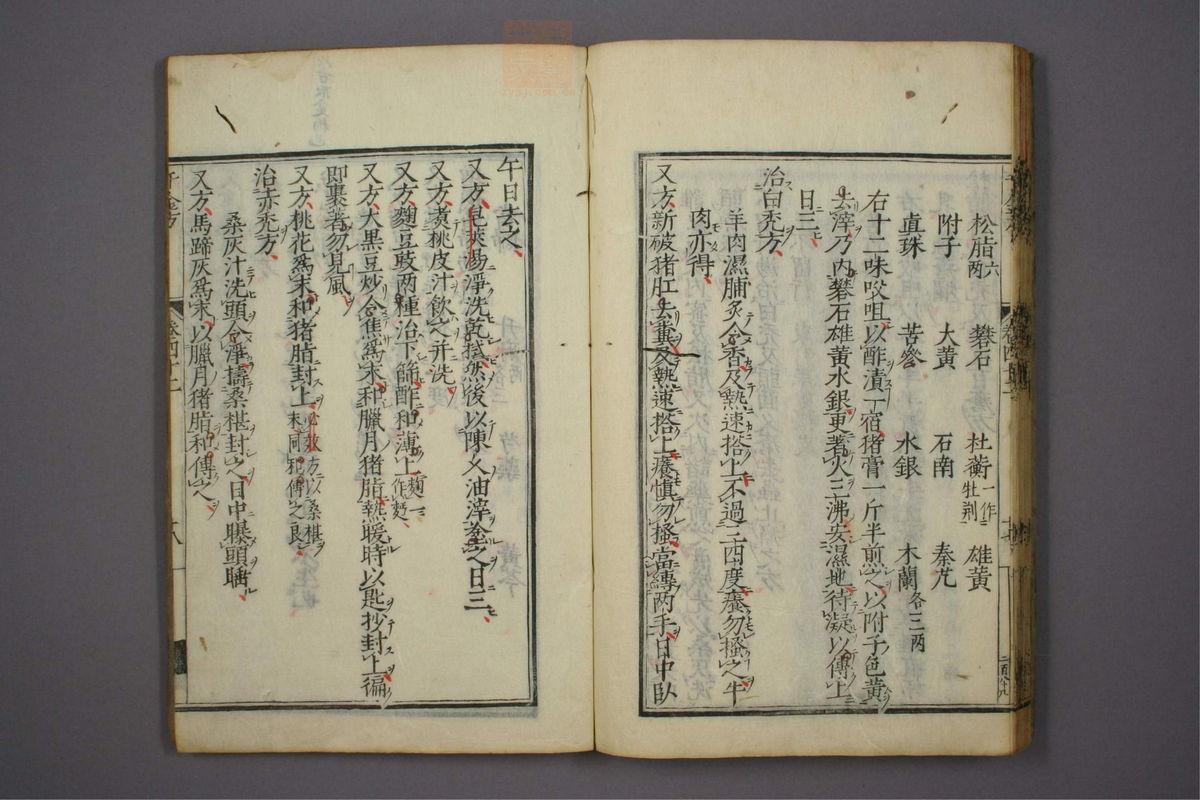 松脂六兩 礬石 杜蘅一作牡荊 雄黃
附子 大黃 石南 秦艽
真珠 苦參 水銀 木蘭各三兩
右十二味㕮咀以酢漬一宿猪膏一斤半煎之以附子色黃
去滓乃內礬石雄黃水銀更著火三沸安濕地待凝以傅上
日三
治白禿方
羊肉濕脯炙令香及熱速搭上不過三四度痒勿搔之牛
肉亦得
又方新破猪肚去糞及熱速搭上痒慎勿搔當縛兩手日中臥
午日去之
又方皂莢湯淨洗乾拭然後以陳久油滓塗之日三
又方桃皮汁飲之并洗
又方麴豆豉兩種治下篩酢和薄上麴一作麪
又方大黑豆炒令焦為末和臘月猪脂熱暖時以匙抄封上徧
即裹著勿見風
又方桃花為末和猪脂封上必效方以桑椹末同和傅之良
治赤禿方
桑灰汁洗頭令淨擣桑椹封之日中曝頭睡
又方馬蹄灰為末以臘月猪脂和傅之
千金方 卷四十二 十八